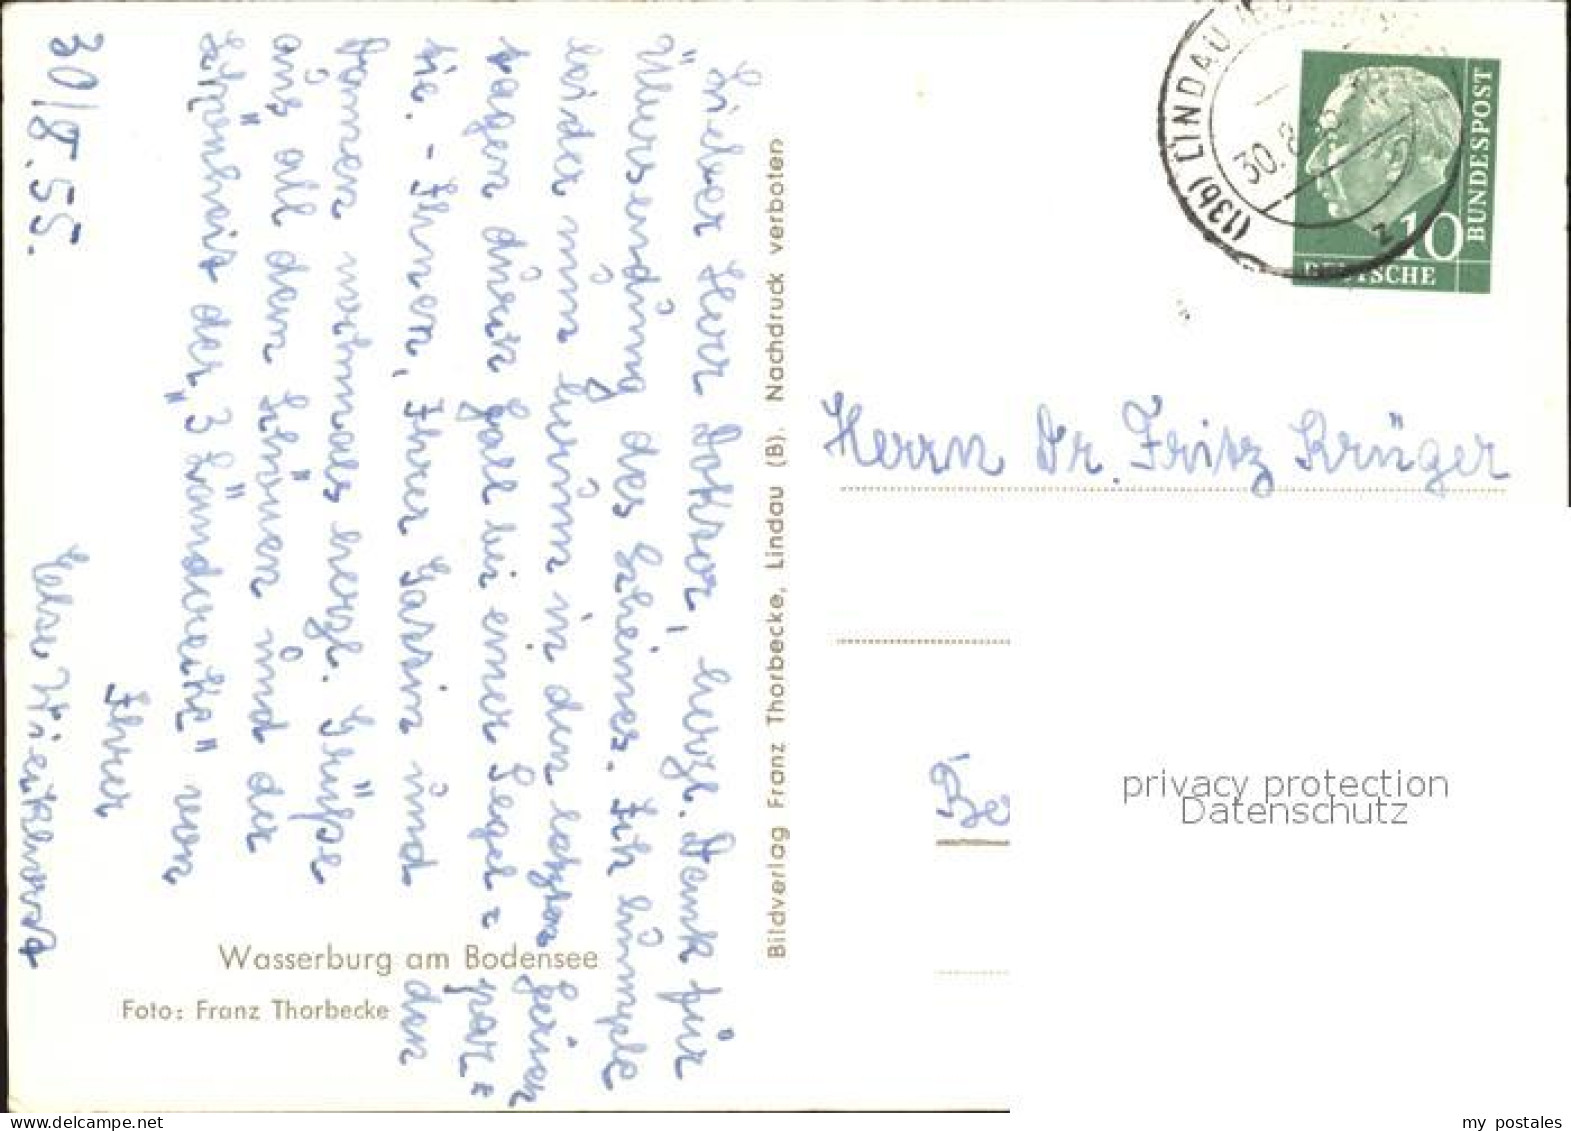 30/8.55.
Lieber Herr Doktor, herzl. Dank für
Übersendung des Scheines. Ich
leider nun in den letzten
tagen durch bei einer Segel=par=
tie. - Ihnen, Ihrer Gattin und den
Damen nochmals herzl. Grüße
aus all dem Schönen und der
Schönheit der "3 Länderecke" von
Ihrer
Else
Wasserburg am Bodensee
Foto: Franz Thorbecke
Bildverlag Franz Thorbecke, Lindau (B). Nachdruck verboten
(13b) LINDAU
30.8.
z
10
DEUTSCHE
BUNDESPOST
Herrn Dr. Fritz Krüger
privacy protection
Datenschutz
www.delcampe.net
my_postales